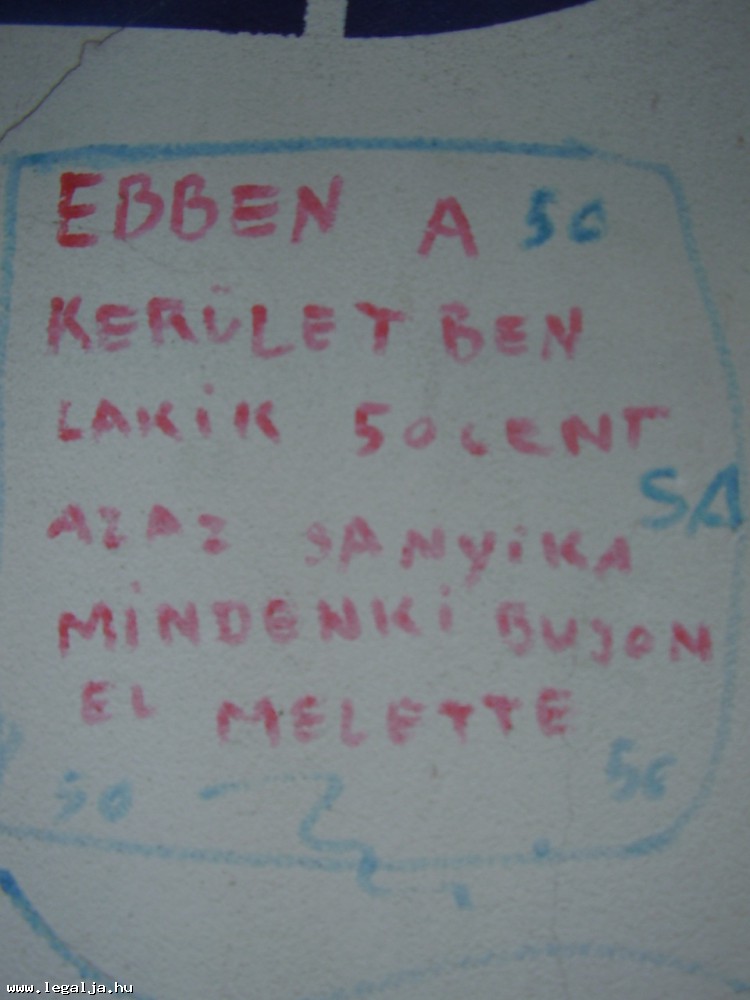 EBBEN A 50
KERÜLET BEN
LAKiK 50CENT
SA
AZAZ SANYiKA
MiNDENKi BUJON
EL MELETTE
50 50
www.legalja.hu